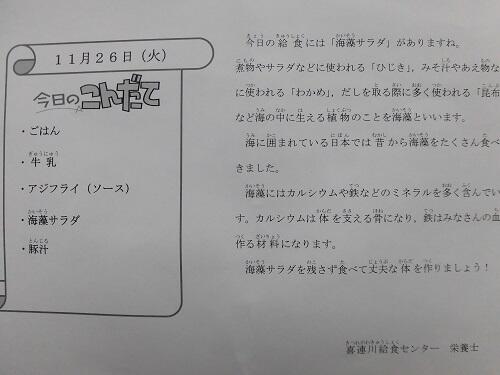 11月26日（火）
今日のこんだて
・ごはん
・牛乳
・アジフライ（ソース）
・海藻サラダ
・豚汁
今日の給食には「海藻サラダ」がありますね。
煮物やサラダなどに使われる「ひじき」、みそ汁やあえ物な
に使われる「わかめ」、だしを取る際に多く使われる「昆布
など海の中に生える植物のことを海藻といいます。
海に囲まれている日本では昔から海藻をたくさん食べ
きました。
海藻にはカルシウムや鉄などのミネラルを多く含んでい
す。カルシウムは体を支える骨になり、鉄はみなさんの血
作る材料になります。
海藻サラダを残さず食べて丈夫な体を作りましょう！
喜連川給食センター　栄養士